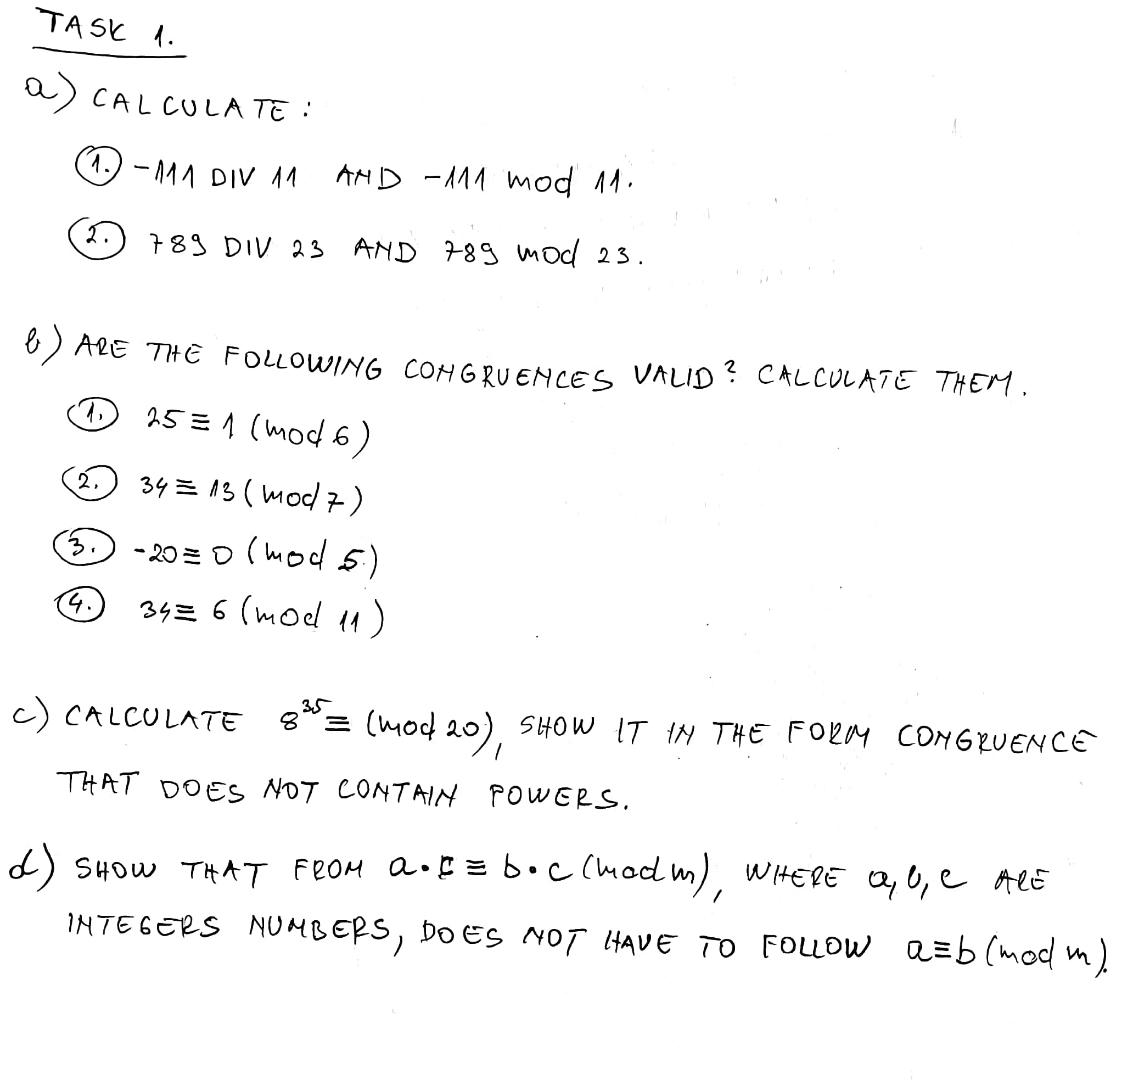 TASK 1.
a) CALCULATE:
1. -111 DIV 11 AND -111 mod 11.
2. 789 DIV 23 AND 789 mod 23.
b) ARE THE FOLLOWING CONGRUENCES VALID? CALCULATE THEM.
1. 25 ≡ 1 (mod 6)
2. 34 ≡ 13 (mod 7)
3. -20 ≡ 0 (mod 5)
4. 34 ≡ 6 (mod 11)
c) CALCULATE 8^35 ≡ (mod 20), SHOW IT IN THE FORM CONGRUENCE
THAT DOES NOT CONTAIN POWERS.
d) SHOW THAT FROM a·c ≡ b·c (mod m), WHERE a, b, c ARE
INTEGERS NUMBERS, DOES NOT HAVE TO FOLLOW a≡b (mod m).